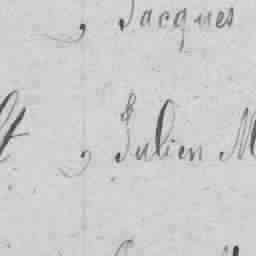 , Jacques
, Julien